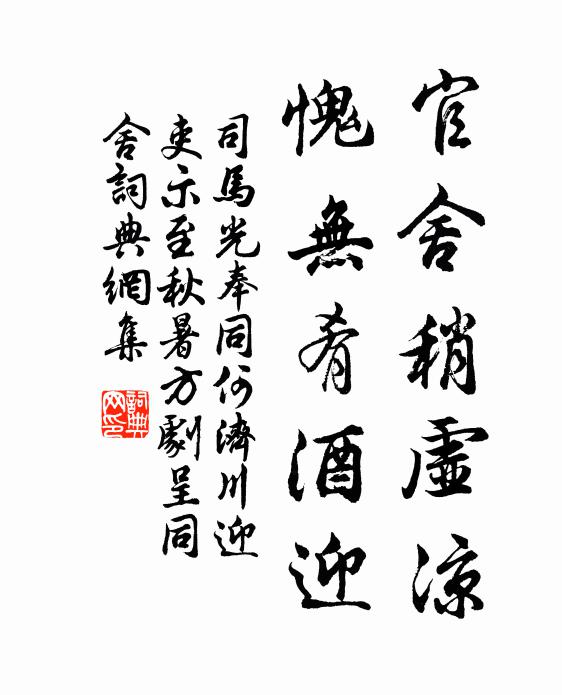 官舍稍虛涼
愧無肴酒迎
司馬光奉同何濟川迎
吏示至秋暑方劇呈同
舍詞典網集
詞典
网印